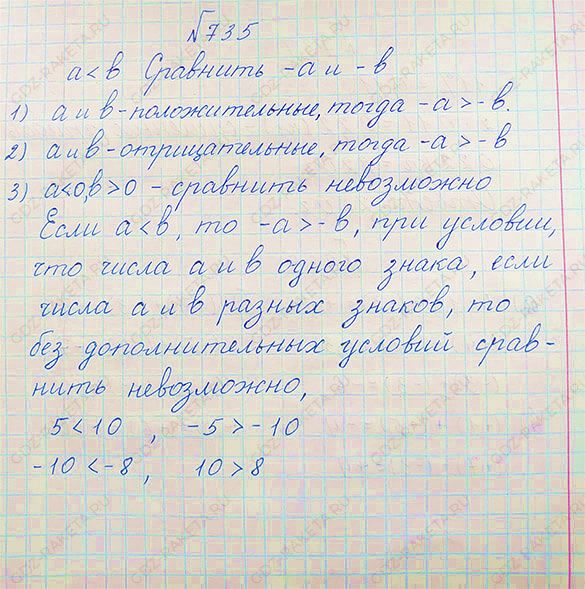 №735
a<b Сравнить -a и -b
1) a и b-положительные, тогда -a>-b.
2) a и b-отрицательные, тогда -a>-b
3) a<0, b>0 - сравнить невозможно
Если a<b, то -a>-b, при условии,
что числа a и b одного знака, если
числа a и b разных знаков, то
без дополнительных условий срав-
нить невозможно,
5<10 , -5>-10
-10<-8, 10>8
GDZ-RAKETA.RU